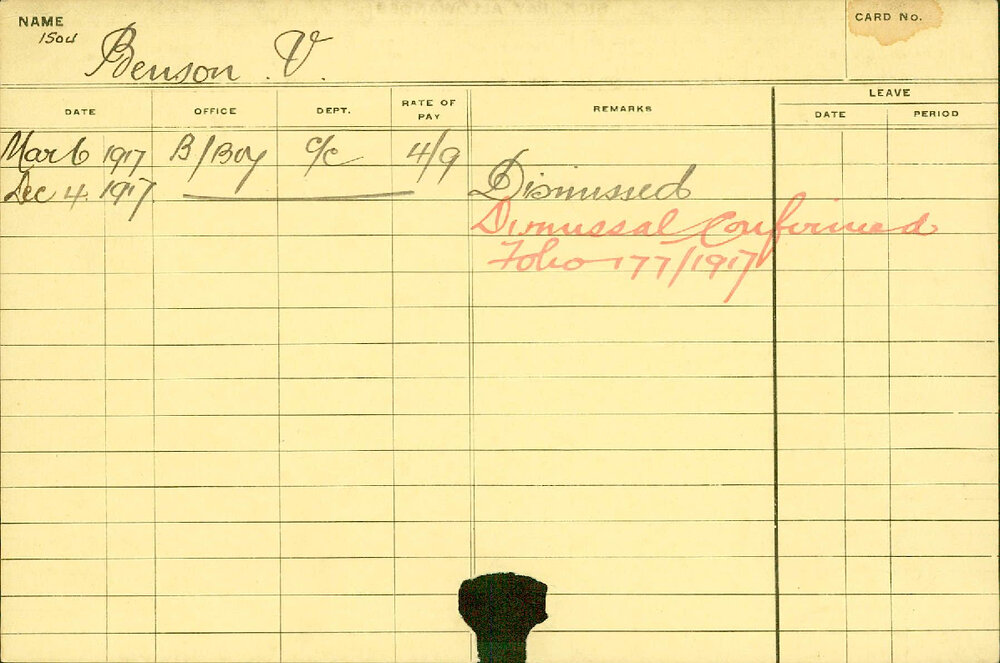 NAME
CARD No.
Benson. V.
DATE OFFICE DEPT. RATE OF PAY REMARKS LEAVE
DATE PERIOD
Mar 6 1917 B/Boy C/C 4/9
Dec 4. 1917. Dismissed
Dismissal Confirmed
Folio 177/1917